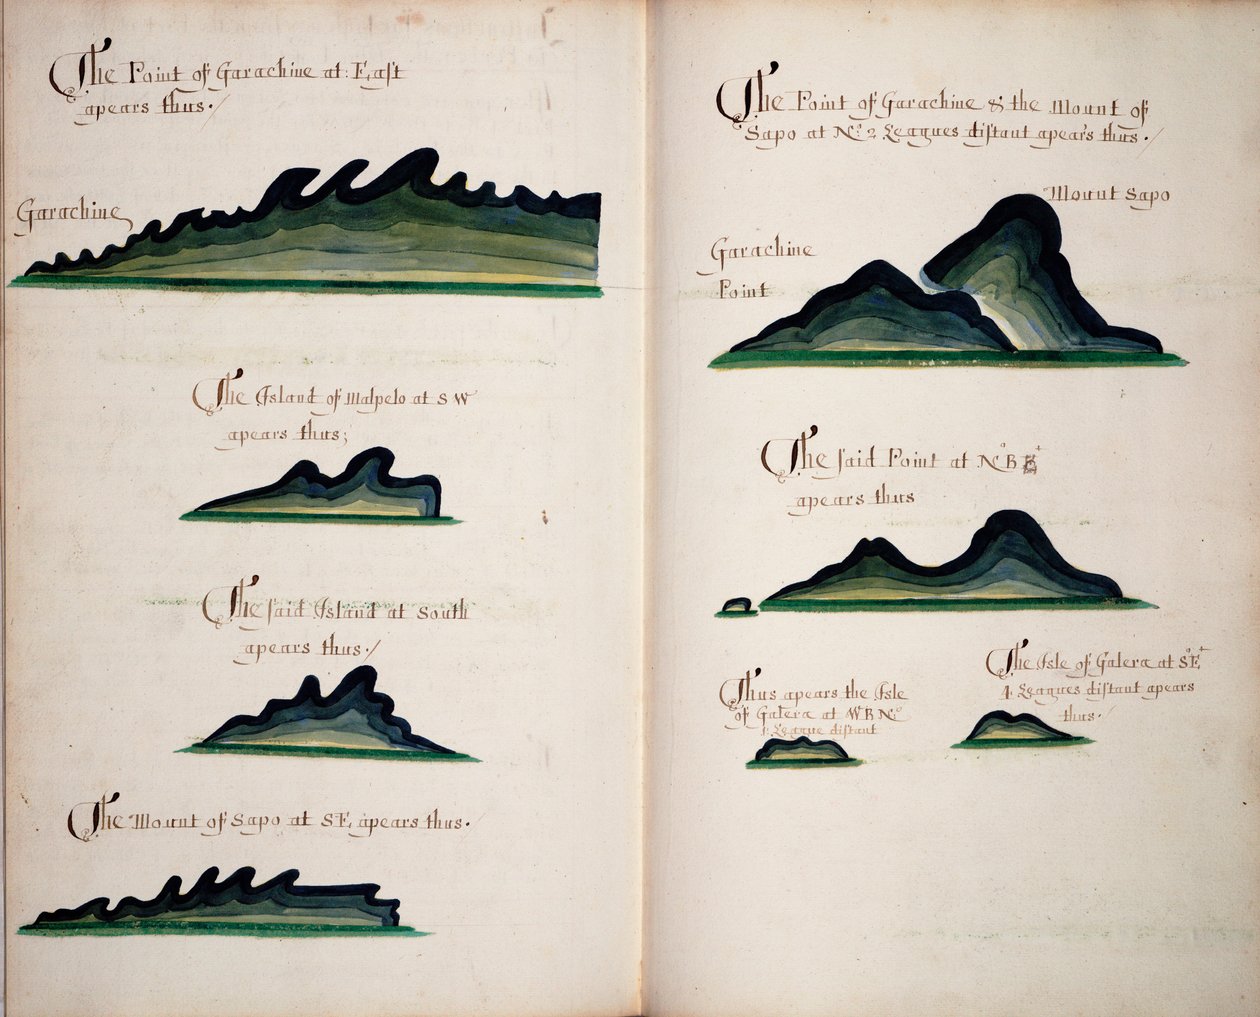 The Point of Garachine at: East
apears thus./
Garachine
The Island of Malpelo at SW
apears thus;
The said Island at South
apears thus./
The Mount of Sapo at SE, apears thus.
The Point of Garachine & the Mount of
Sapo at No: 2 Leagues distant apears thus./
Mount Sapo
Garachine
Point
The said Point at No B
apears thus
Thus apears the Isle
of Galera at WBNo:
1: League distant
The Isle of Galera at SoEt
4 Leagues distant apears
thus./